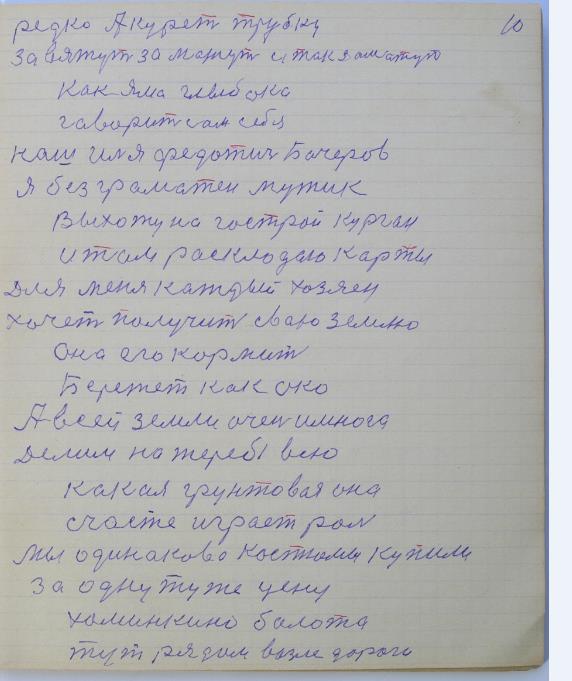 редко Я курет трубку 10
завяжут замажут и так заматут
как яма глыбока
гаворит сам себя
наш имя федотич Бачеров
я безграматен мужик
Выхожу на гострой курган
и там расклодаю карты
для меня каждый хозяен
хочет получит сваю землю
она его кормит
Бережет как око
А всей земли очен и многа
делим на жеребı всю
какая грунтовая она
счасте играет рол
мы одинакова костюми купили
за одну туже цену
хоминкино балота
тут рядом возле дорога